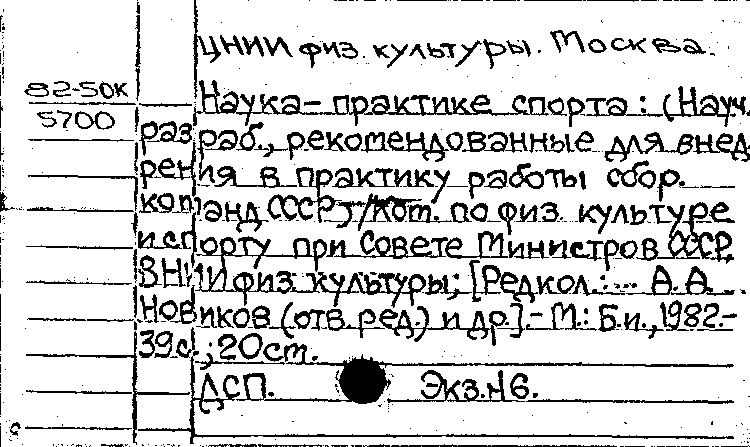 ЦНИИ физ. культуры. Москва.
82-50К
5700
Наука – практике спорта : (Науч.
разраб., рекомендованные для внед-
рения в практику работы сбор.
команд СССР) / Ком. по физ. культуре
и спорту при Совете Министров СССР,
ВНИИ физ. культуры; [Редкол.: ... А.А.
Новиков (отв. ред.) и др.]. – М.: Б.и., 1982.-
39с.; 20см.
ДСП. Экз.№6.